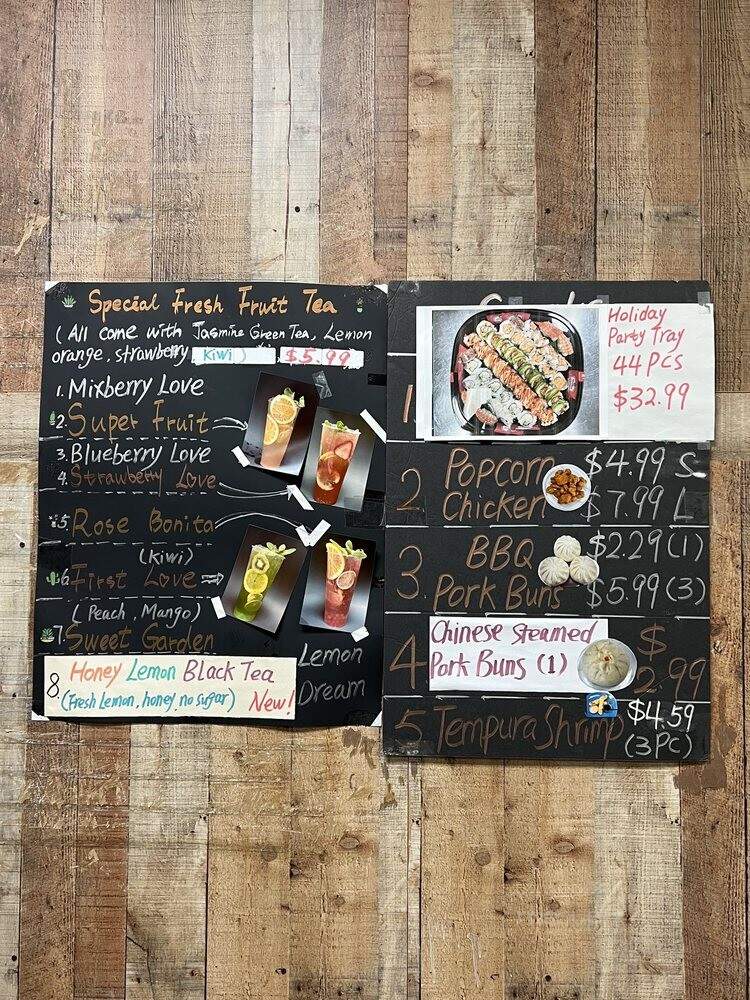 Special Fresh Fruit Tea
(All come with Jasmine Green Tea, Lemon
orange, strawberry, Kiwi) $5.99
1. Mixberry Love
2. Super Fruit
3. Blueberry Love
4. Strawberry Love
5. Rose Bonita
(Kiwi)
6. First Love
(Peach, Mango)
7. Sweet Garden
8. Honey Lemon Black Tea
(Fresh Lemon, honey, no sugar) New!
Lemon
Dream
Holiday
Party Tray
44 PCS
$32.99
1.
2 Popcorn $4.99 S
Chicken $7.99 L
3. BBQ $2.29 (1)
Pork Buns $5.99 (3)
4 Chinese Steamed
Pork Buns (1) $2.99
5. Tempura Shrimp $4.59
(3PC)